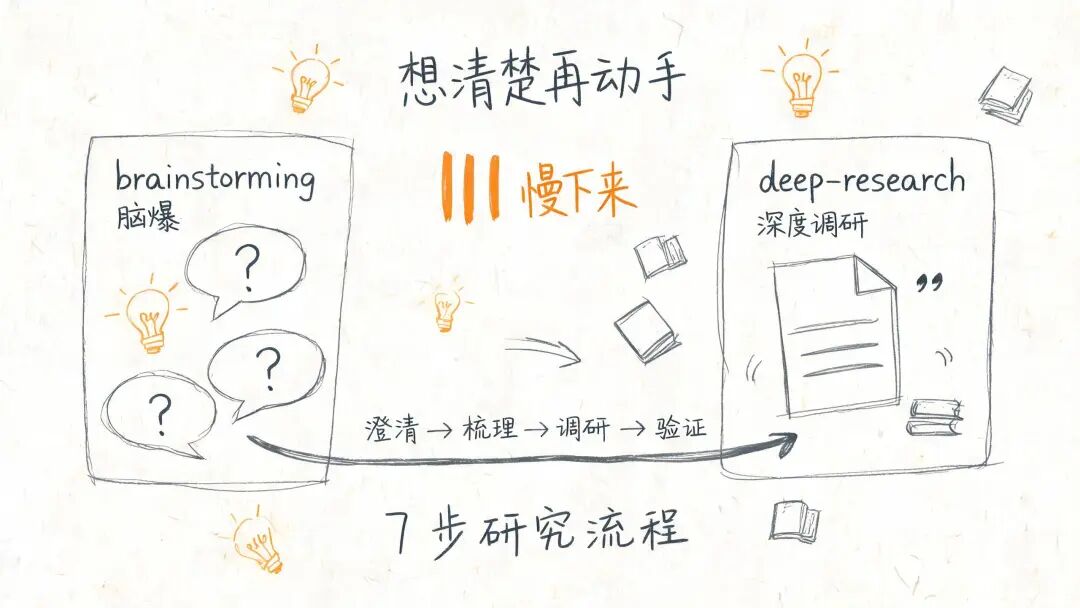 想清楚再动手
慢下来
brainstorming
脑爆
?
?
?
deep-research
深度调研
”
澄清→梳理→调研→验证
7步研究流程